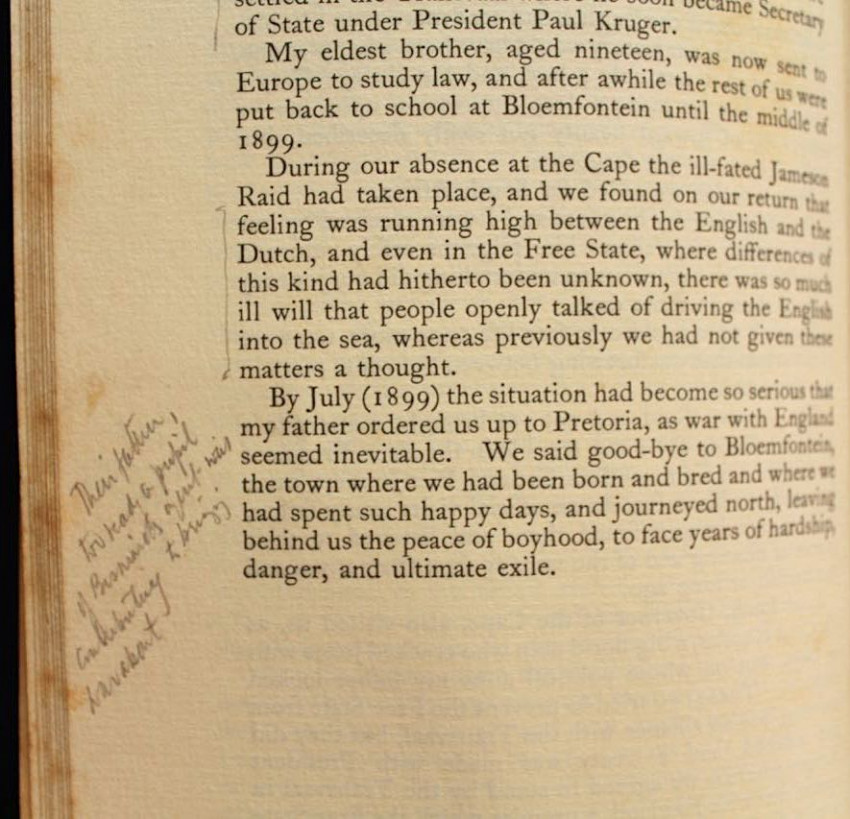 settled in the Transvaal where he soon became Secretary
of State under President Paul Kruger.
My eldest brother, aged nineteen, was now sent to
Europe to study law, and after awhile the rest of us were
put back to school at Bloemfontein until the middle of
1899.
During our absence at the Cape the ill-fated Jameson
Raid had taken place, and we found on our return that
feeling was running high between the English and the
Dutch, and even in the Free State, where differences of
this kind had hitherto been unknown, there was so much
ill will that people openly talked of driving the English
into the sea, whereas previously we had not given these
matters a thought.
By July (1899) the situation had become so serious that
my father ordered us up to Pretoria, as war with England
seemed inevitable. We said good-bye to Bloemfontein,
the town where we had been born and bred and where we
had spent such happy days, and journeyed north, leaving
behind us the peace of boyhood, to face years of hardship,
danger, and ultimate exile.
Their father,
too read, a pupil
of
contributing to bring
war about